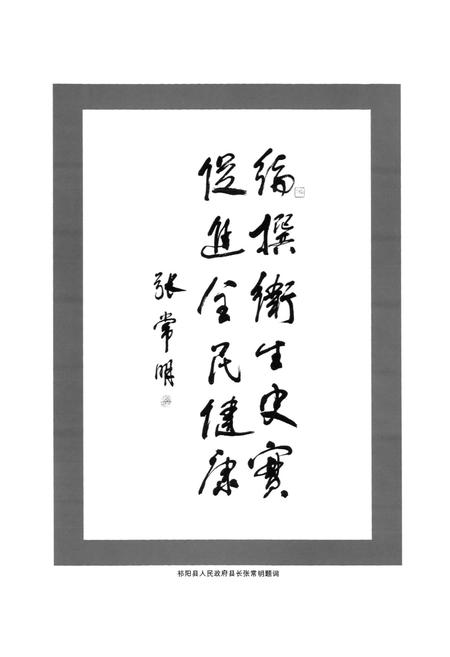 编撰衛生史實
促進全民健康
张常明
祁阳县人民政府县长张常明题词